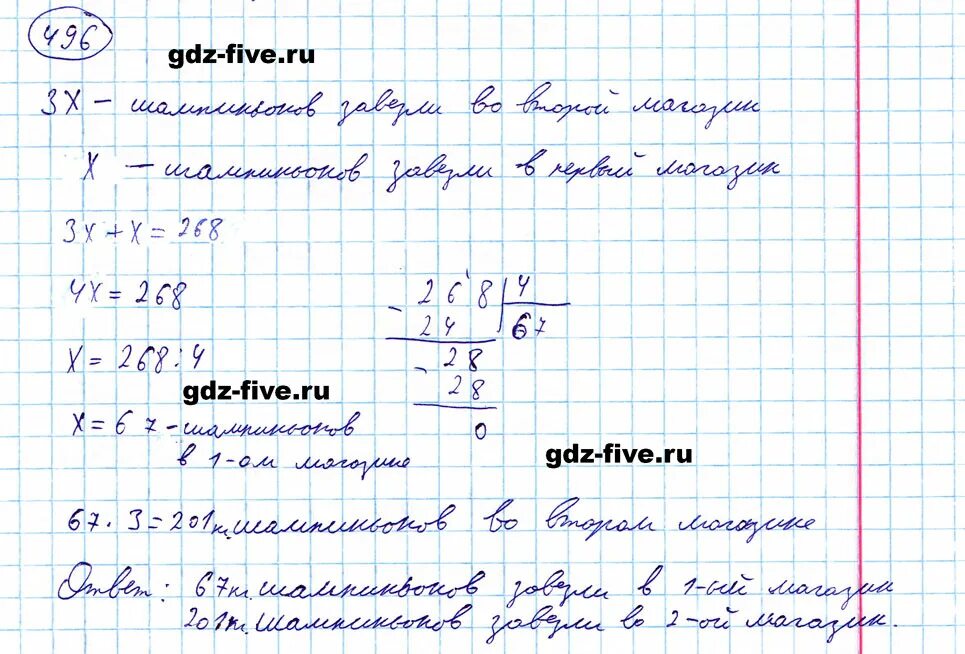 496
gdz-five.ru
3х – шампиньонов завезли во второй магазин
х – шампиньонов завезли в первый магазин
3х + х = 268
4х = 268
х = 268 : 4
268 | 4
- 24 | 67
- 28
28
0
gdz-five.ru
х = 67 - шампиньонов
в 1-ом магазине
gdz-five.ru
67 · 3 = 201 кг. шампиньонов во втором магазине
Ответ: 67 кг. шампиньонов завезли в 1-ый магазин
201 кг. шампиньонов завезли во 2-ой магазин.